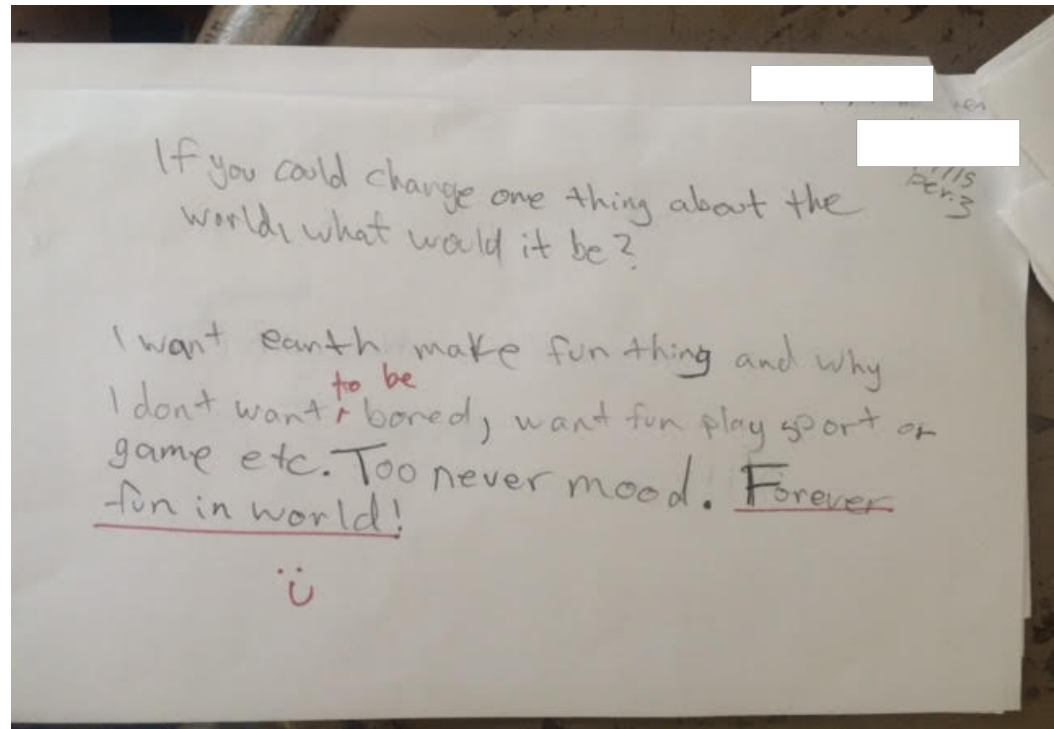 per. 3
If you could change one thing about the
world, what would it be?
I want earth make fun thing and why
to be
I dont want bored, want fun play sport or
game etc. Too never mood. Forever
fun in world!